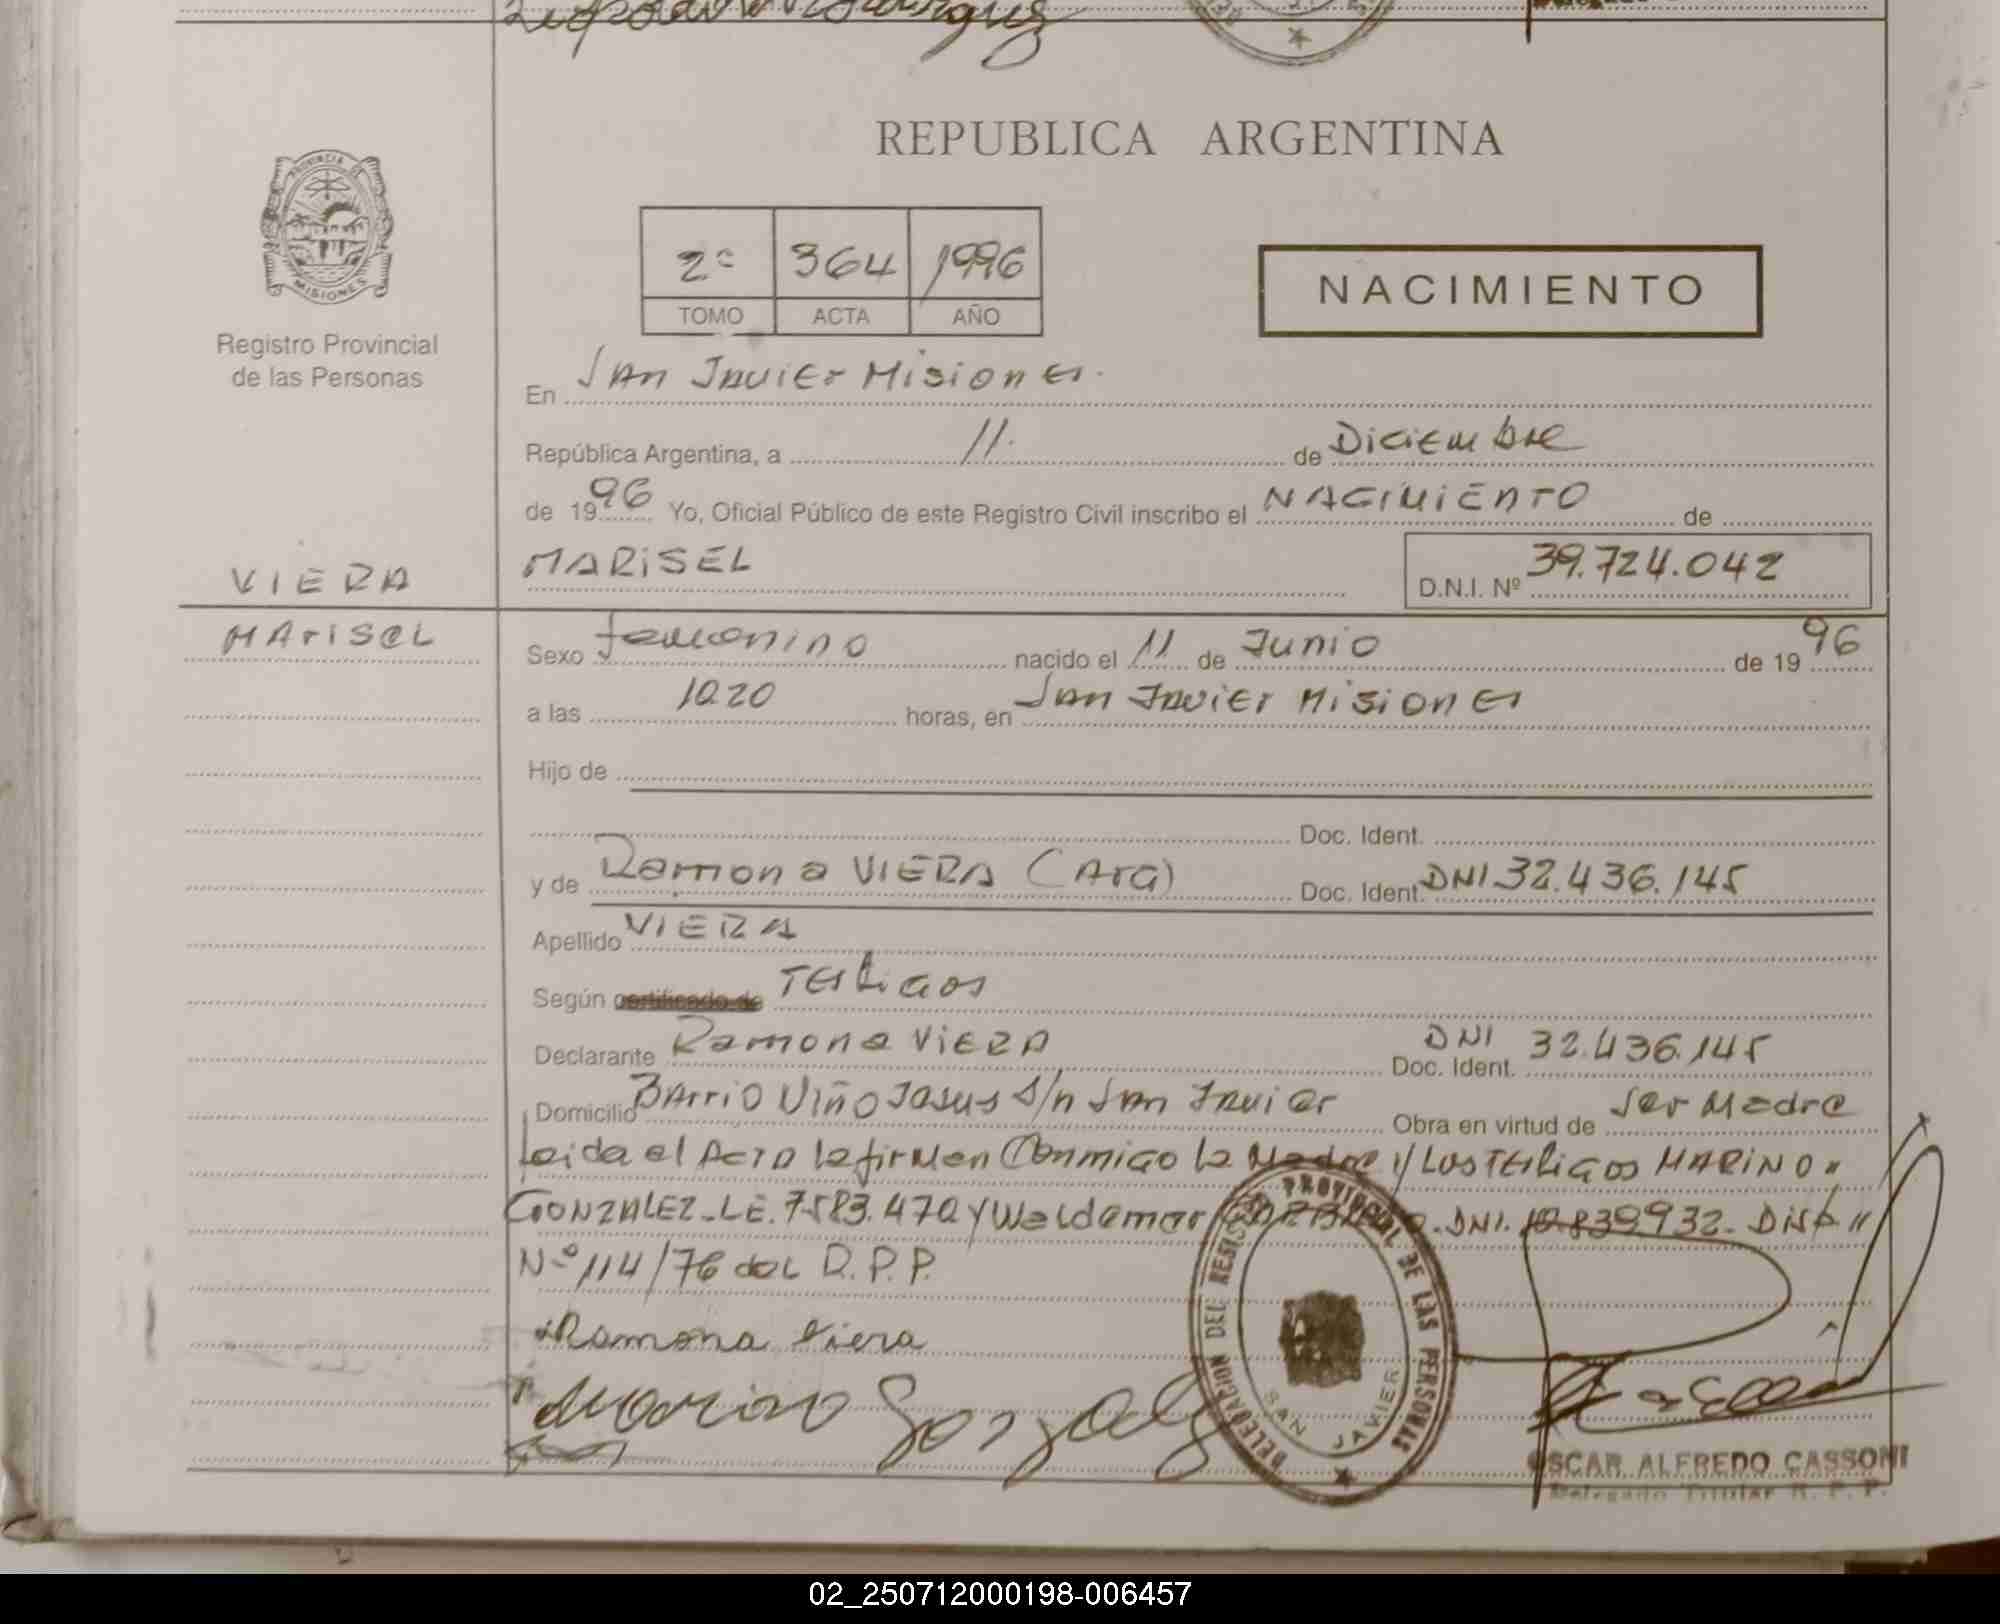 REPUBLICA ARGENTINA
PROVINCIA DE
MISIONES
Registro Provincial
de las Personas
2º 364 1996
TOMO ACTA AÑO
NACIMIENTO
En San Javier Misiones.
República Argentina, a 11. de Diciembre
de 1996 Yo, Oficial Público de este Registro Civil inscribo el NACIMIENTO de
VIERA
MARISEL
MARISEL D.N.I. Nº 39.724.042
Sexo femenino nacido el 11 de Junio de 1996
a las 1020 horas, en San Javier Misiones
Hijo de
Doc. Ident.
y de Ramona VIERA (Arg) Doc. Ident. DNI 32.436.145
Apellido VIERA
Según certificado de Testigos
Declarante Ramona VIERA Doc. Ident. DNI 32.436.145
Domicilio Barrio Niño Jesus S/n San Javier Obra en virtud de Ser Madre
Leida el Acta la firman Conmigo la Madre y Los Testigos MARINO "
GONZALEZ-LE.7583.470 y Waldemar DNI. 10.839932- DISP "
Nº 114/76 del R.P.P.
Ramona Viera
Marino Gonzalez
DELEGACION DEL REGISTRO PROVINCIAL DE LAS PERSONAS
SAN JAVIER
OSCAR ALFREDO CASSONI
Delegado Titular R. P. P.
02_250712000198-006457